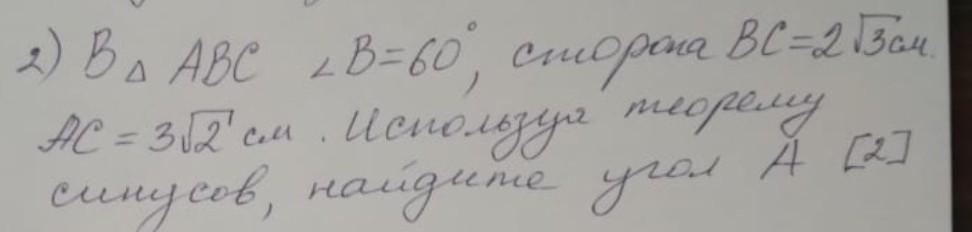 2) В △ ABC ∠B=60°, сторона BC=2√3см.
AC = 3√2 см. Используя теорему
синусов, найдите угол A [2]